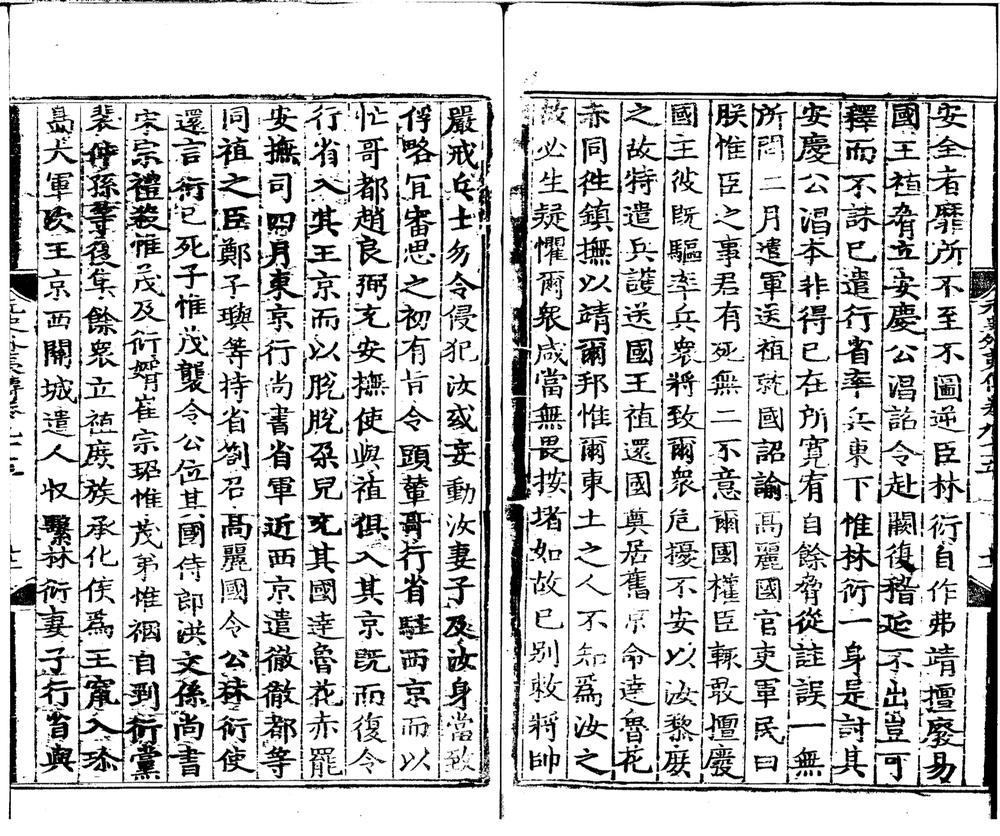 安全者靡所不至不圖逆臣林衍自作弗靖擅廢易
國王禃脅立安慶公淐詔令赴闕復稽延不出豈可
釋而不誅已遣行省率兵東下惟林衍一身是討其
安慶公淐本非得已在所寛宥自餘脅從詿誤一無
所問二月遣軍送禃就國詔諭高麗國官吏軍民曰
朕惟臣之事君有死無二不意爾國權臣輒敢擅廢
國主彼既驅率兵衆將致爾衆危擾不安以汝黎庶
之故特遣兵護送國王禃還國奠居舊京命達魯花
赤同徃鎮撫以靖爾邦惟爾東土之人不知爲汝之
故必生疑懼爾衆咸當無畏按堵如故已别敕將帥
嚴戒兵士勿令侵犯汝或妄動汝妻子及汝身當致
俘略宜審思之初有旨令頭輦哥行省駐西京而以
忙哥都趙良弼充安撫使與禃俱入其京既而復令
行省入其王京而以脫脫朶兒充其國達魯花赤罷
安撫司四月東京行尚書省軍近西京遣徹徹都等
同禃之臣鄭子璵等持省劄召高麗國令公林衍使
還言衍已死子惟茂襲令公位其國侍郎洪文係尚書
宋宗禮裴惟茂及衍婿崔宗玿惟茂弟惟裀自剄衍黨
裴仲孫等復集餘衆立禃庶族承化侯爲王竄入珍
島大軍次王京西關城遣人收繫林衍妻子行省與